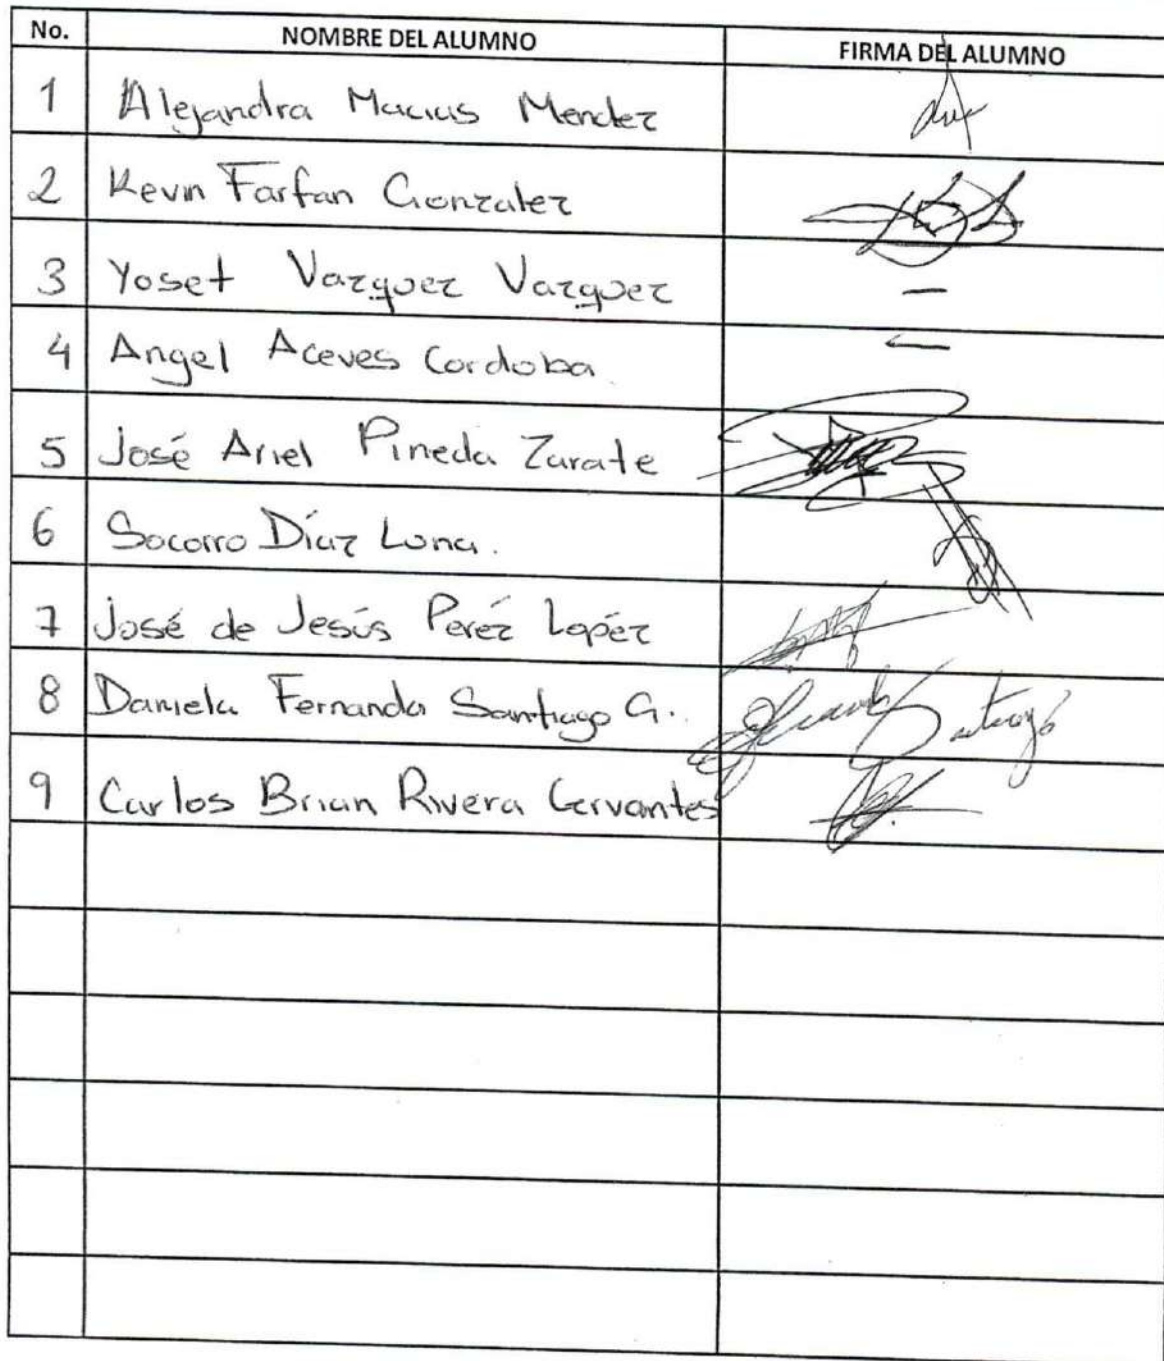 No. NOMBRE DEL ALUMNO FIRMA DEL ALUMNO
1 Alejandra Macias Mendez
2 Kevin Farfan Gonzalez
3 Yoset Vazquez Vazquez —
4 Angel Aceves Cordoba —
5 José Ariel Pineda Zarate
6 Socorro Díaz Luna.
7 José de Jesús Peréz Lopéz
8 Daniela Fernanda Santiago G.
9 Carlos Brian Rivera Cervantes